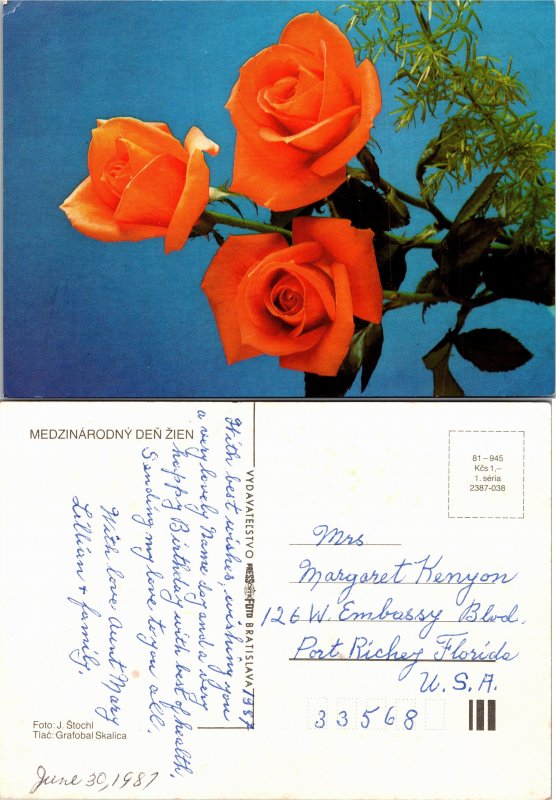 MEDZINÁRODNÝ DEŇ ŽIEN
With best wishes, wishing you
a very lovely Name day and a very
happy Birthday with best of health,
Sending my love to you all.
With love Aunt Mary
Lillian + family.
1987
VYDAVATEĽSTVO PRESSFOTO BRATISLAVA
81–945
Kčs 1,–
1. séria
2387-038
Mrs
Margaret Kenyon
126 W. Embassy Blvd.
Port Richey Florida
U.S.A.
33568
Foto: J. Štochl
Tlač: Grafobal Skalica
June 30, 1987